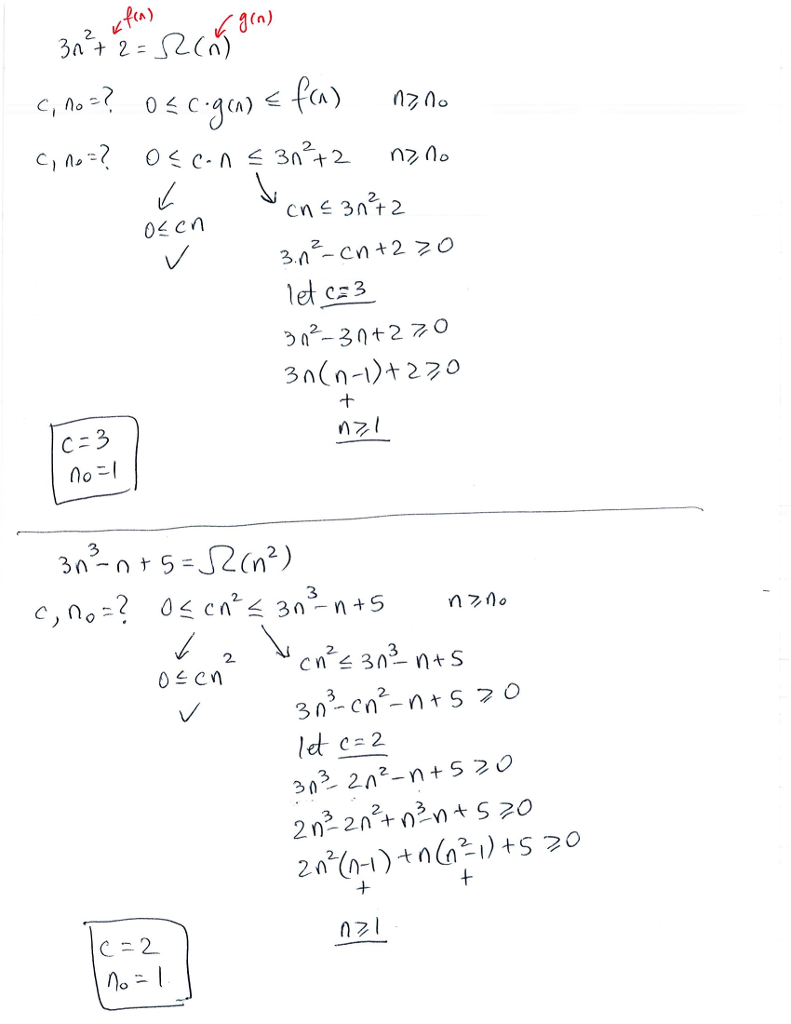 f(n) g(n)
3n²+ 2 = Ω(n)
c, n₀=? 0 ≤ c·g(n) ≤ f(n) n≥n₀
c, n₀=? 0 ≤ c·n ≤ 3n²+2 n≥n₀
0≤cn
✓
cn ≤ 3n²+2
3n²-cn+2 ≥0
let c=3
3n²-3n+2 ≥0
3n(n-1)+2≥0
+
n≥1
c=3
n₀=1
3n³-n+5=Ω(n²)
c, n₀=? 0≤ cn²≤ 3n³-n+5 n≥n₀
0≤cn²
✓
cn²≤ 3n³-n+5
3n³-cn²-n+5 ≥0
let c=2
3n³-2n²-n+5≥0
2n³-2n²+n³-n+5≥0
2n²(n-1)+n(n²-1)+5≥0
+ +
n≥1
c=2
n₀=1